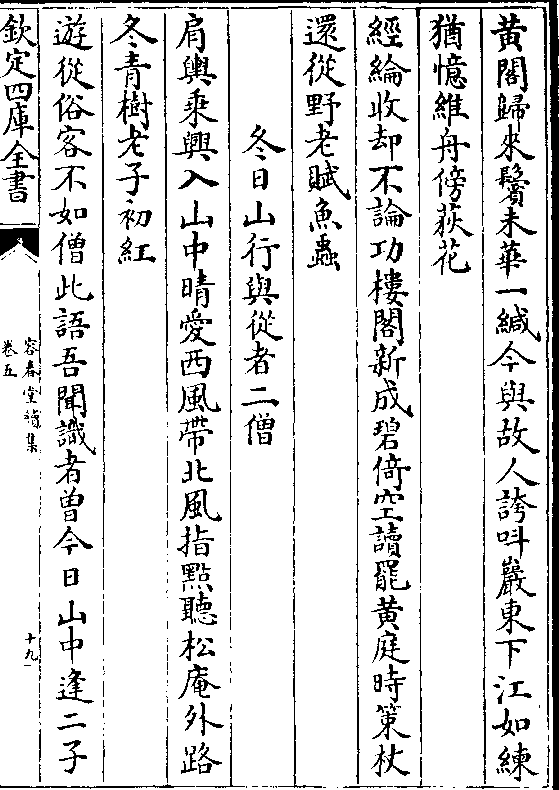 黃閣歸來鬢未華一緘今與故人誇呌巖東下江如練
猶憶維舟傍荻花
經綸收却不論功樓閣新成碧倚空讀罷黃庭時策杖
還從野老賦魚蟲
冬日山行與從者二僧
肩輿乘興入山中晴愛西風帶北風指點聽松庵外路
冬青樹老子初紅
遊從俗客不如僧此語吾聞識者曾今日山中逢二子
欽定四庫全書
容春堂續集
卷五
十九